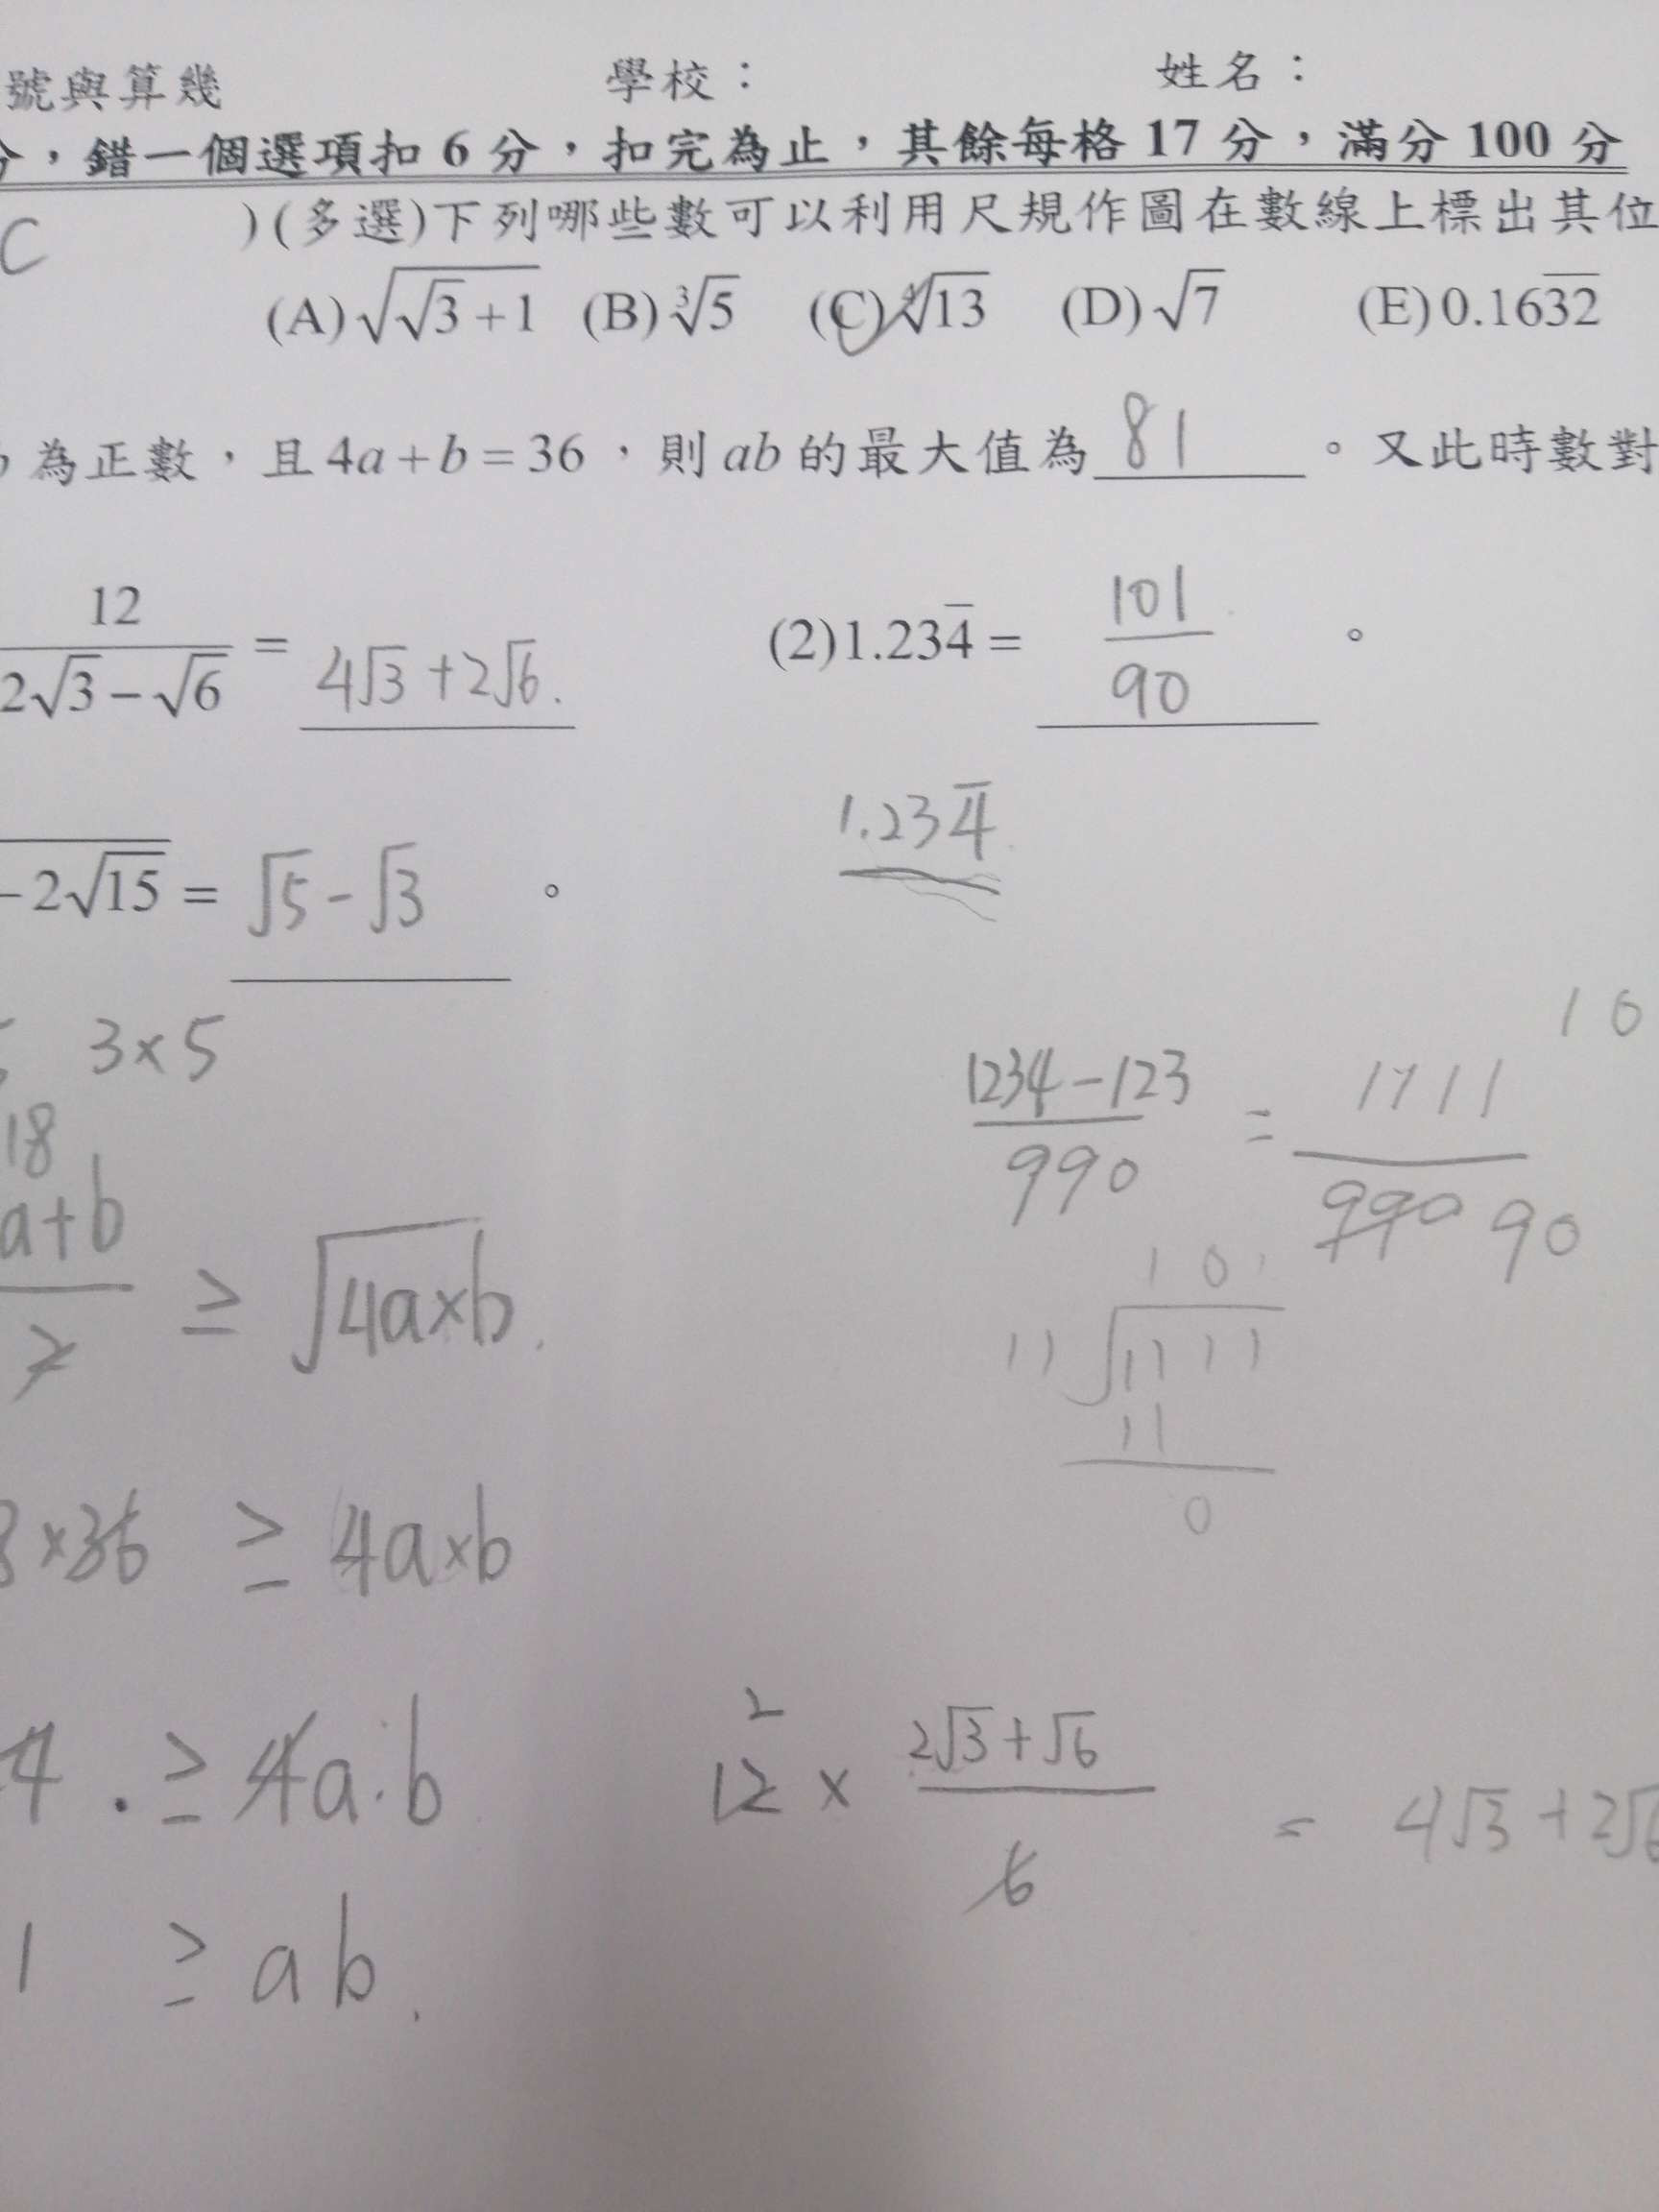 號與算幾 學校： 姓名：
，錯一個選項扣 6 分，扣完為止，其餘每格 17 分，滿分 100 分
C )(多選)下列哪些數可以利用尺規作圖在數線上標出其位
(A)√(√3+1) (B)∛5 (C)∜13 (D)√7 (E)0.16\overline{32}
為正數，且4a+b=36，則ab的最大值為 81 。又此時數對
12/(2√3-√6) = 4√3+2√6. (2)1.23\overline{4}= 101/90 。
1.23\overline{4}
-2√15 = √5-√3 。
3×5
18
a+b/2 ≥ √(4a×b).
1234-123/990 = 1111/990 90
10
101
11 1111
11
0
×36 ≥ 4a×b
4. ≥ 4a·b
2
12 × (2√3+√6)/6 = 4√3+2√6
1 ≥ ab.